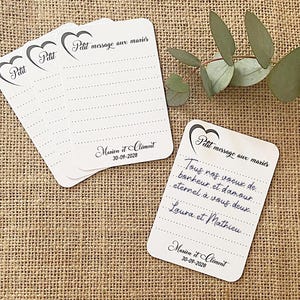 Petit
Petit
Petit message aux mariés
Marion et Clément
30-09-2028
Petit message aux mariés
Tous nos voeux de
bonheur et d'amour
éternel à vous deux.
Laura et Mathieu
Marion et Clément
30-09-2028